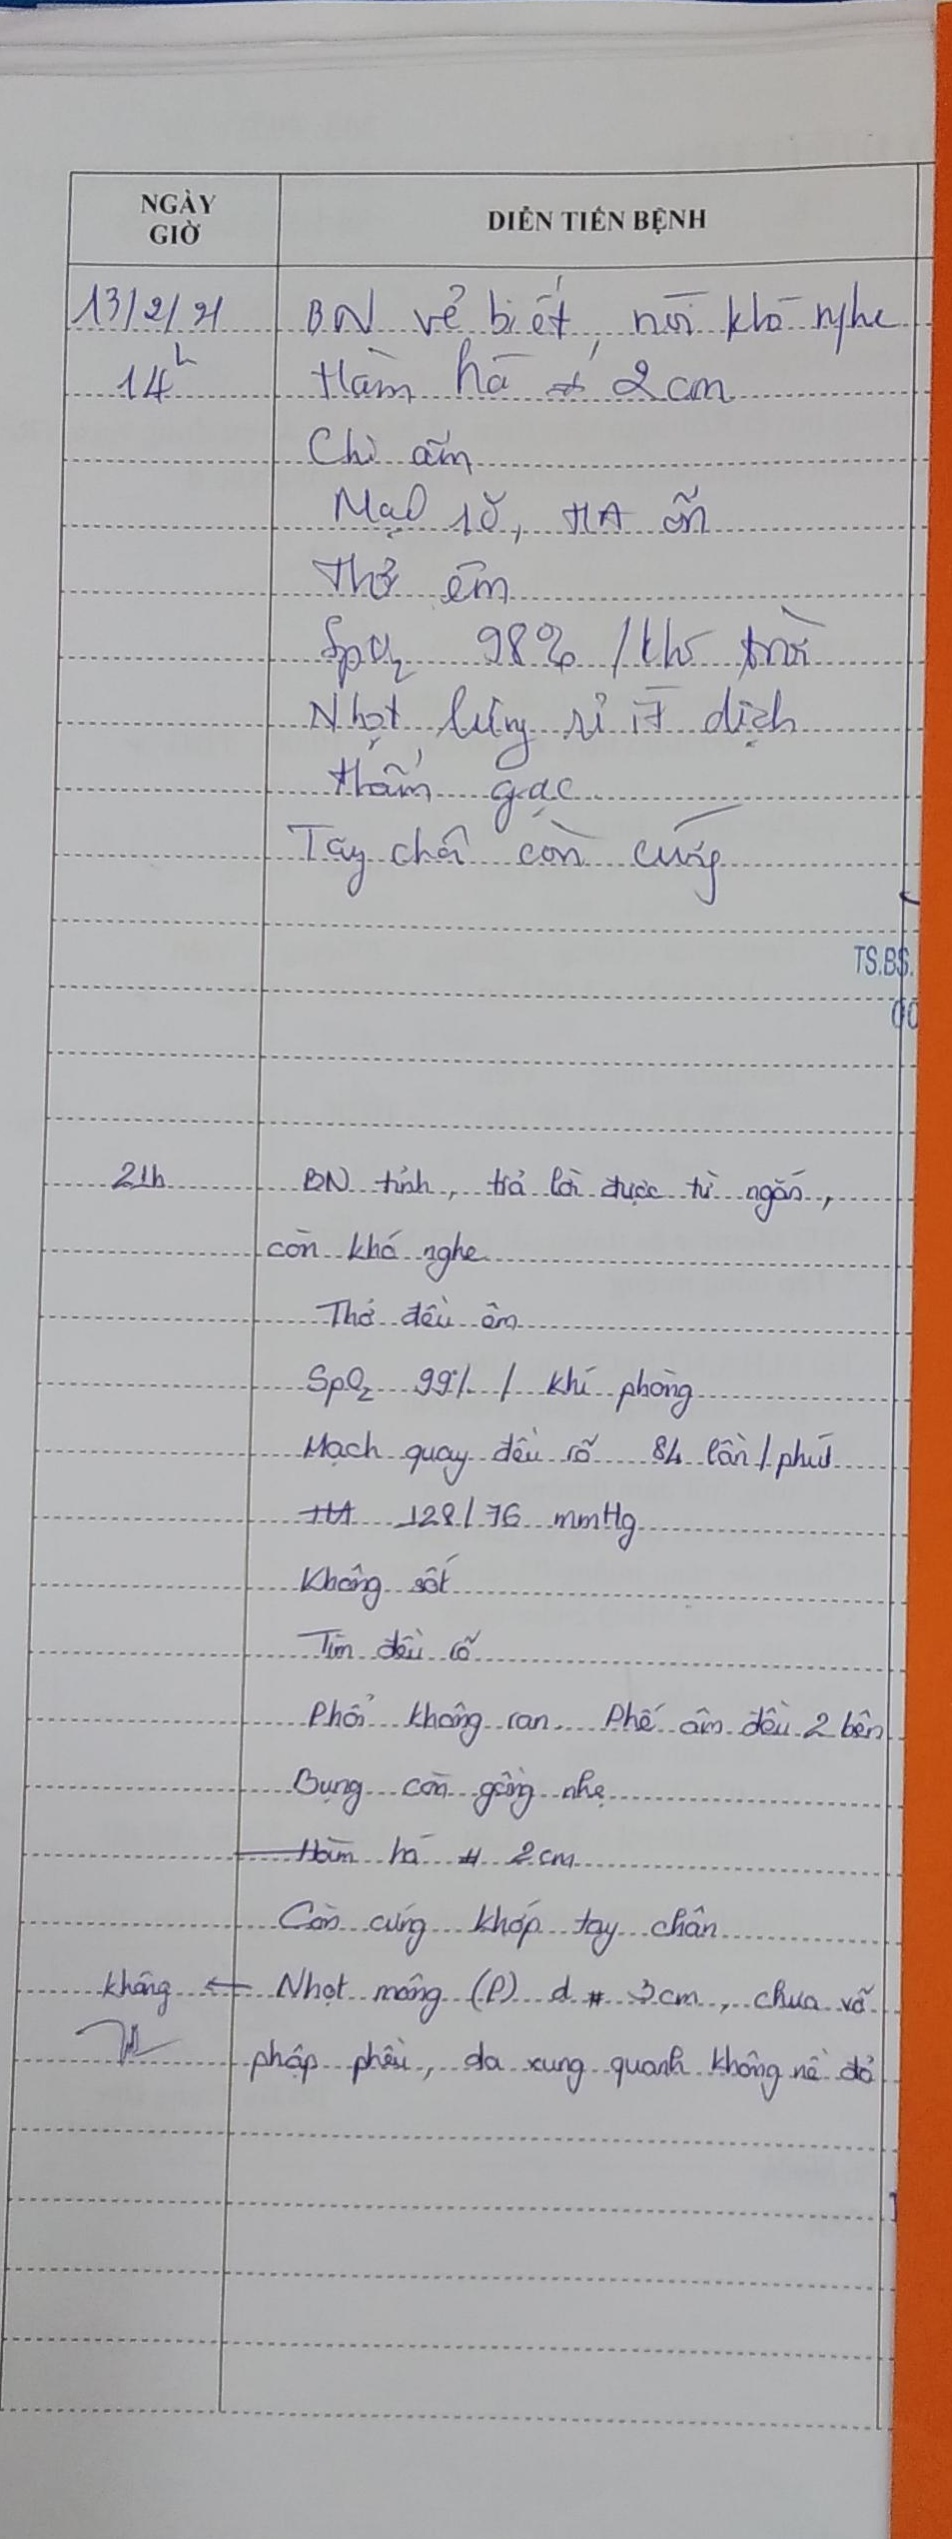 NGÀY
GIỜ
DIỄN TIẾN BỆNH
13/2/21 BN vẻ biết, nói khó nghe
14h Hàm há # 2cm
Chi ấm
Mạch rõ, HA ổn
Thở êm
SpO2 98% / khí trời
Nhọt lưng rỉ ít dịch
thấm gạc
Tay chân còn cứng
TS.BS.
00
21h BN tỉnh, trả lời được từ ngắn,
còn khó nghe
Thở đều êm
SpO2 99% / khí phòng
Mạch quay đều rõ 84 lần/phút
HA 128/76 mmHg
Không sốt
Tim đều rõ
Phổi không ran. Phế âm đều 2 bên
Bụng còn gồng nhẹ
Hàm há # 2cm
Còn cứng khớp tay chân
không ← Nhọt mông (P) d # 3cm, chưa vỡ
phập phều, da xung quanh không nề đỏ